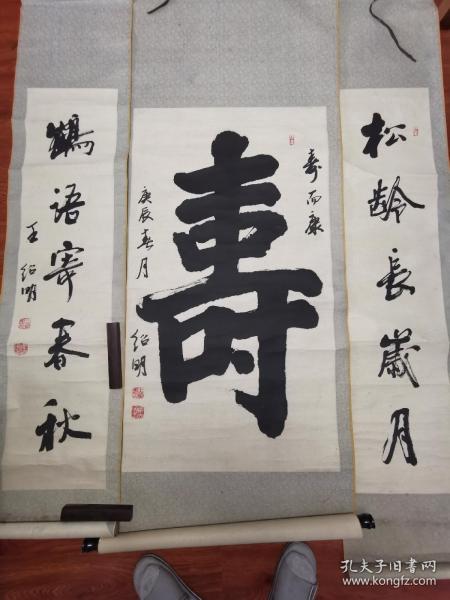 松龄长岁月
寿而康
壽
庚辰春月
绍明
鹤语寄春秋
王绍明
孔夫子旧书网
www.kongfz.com